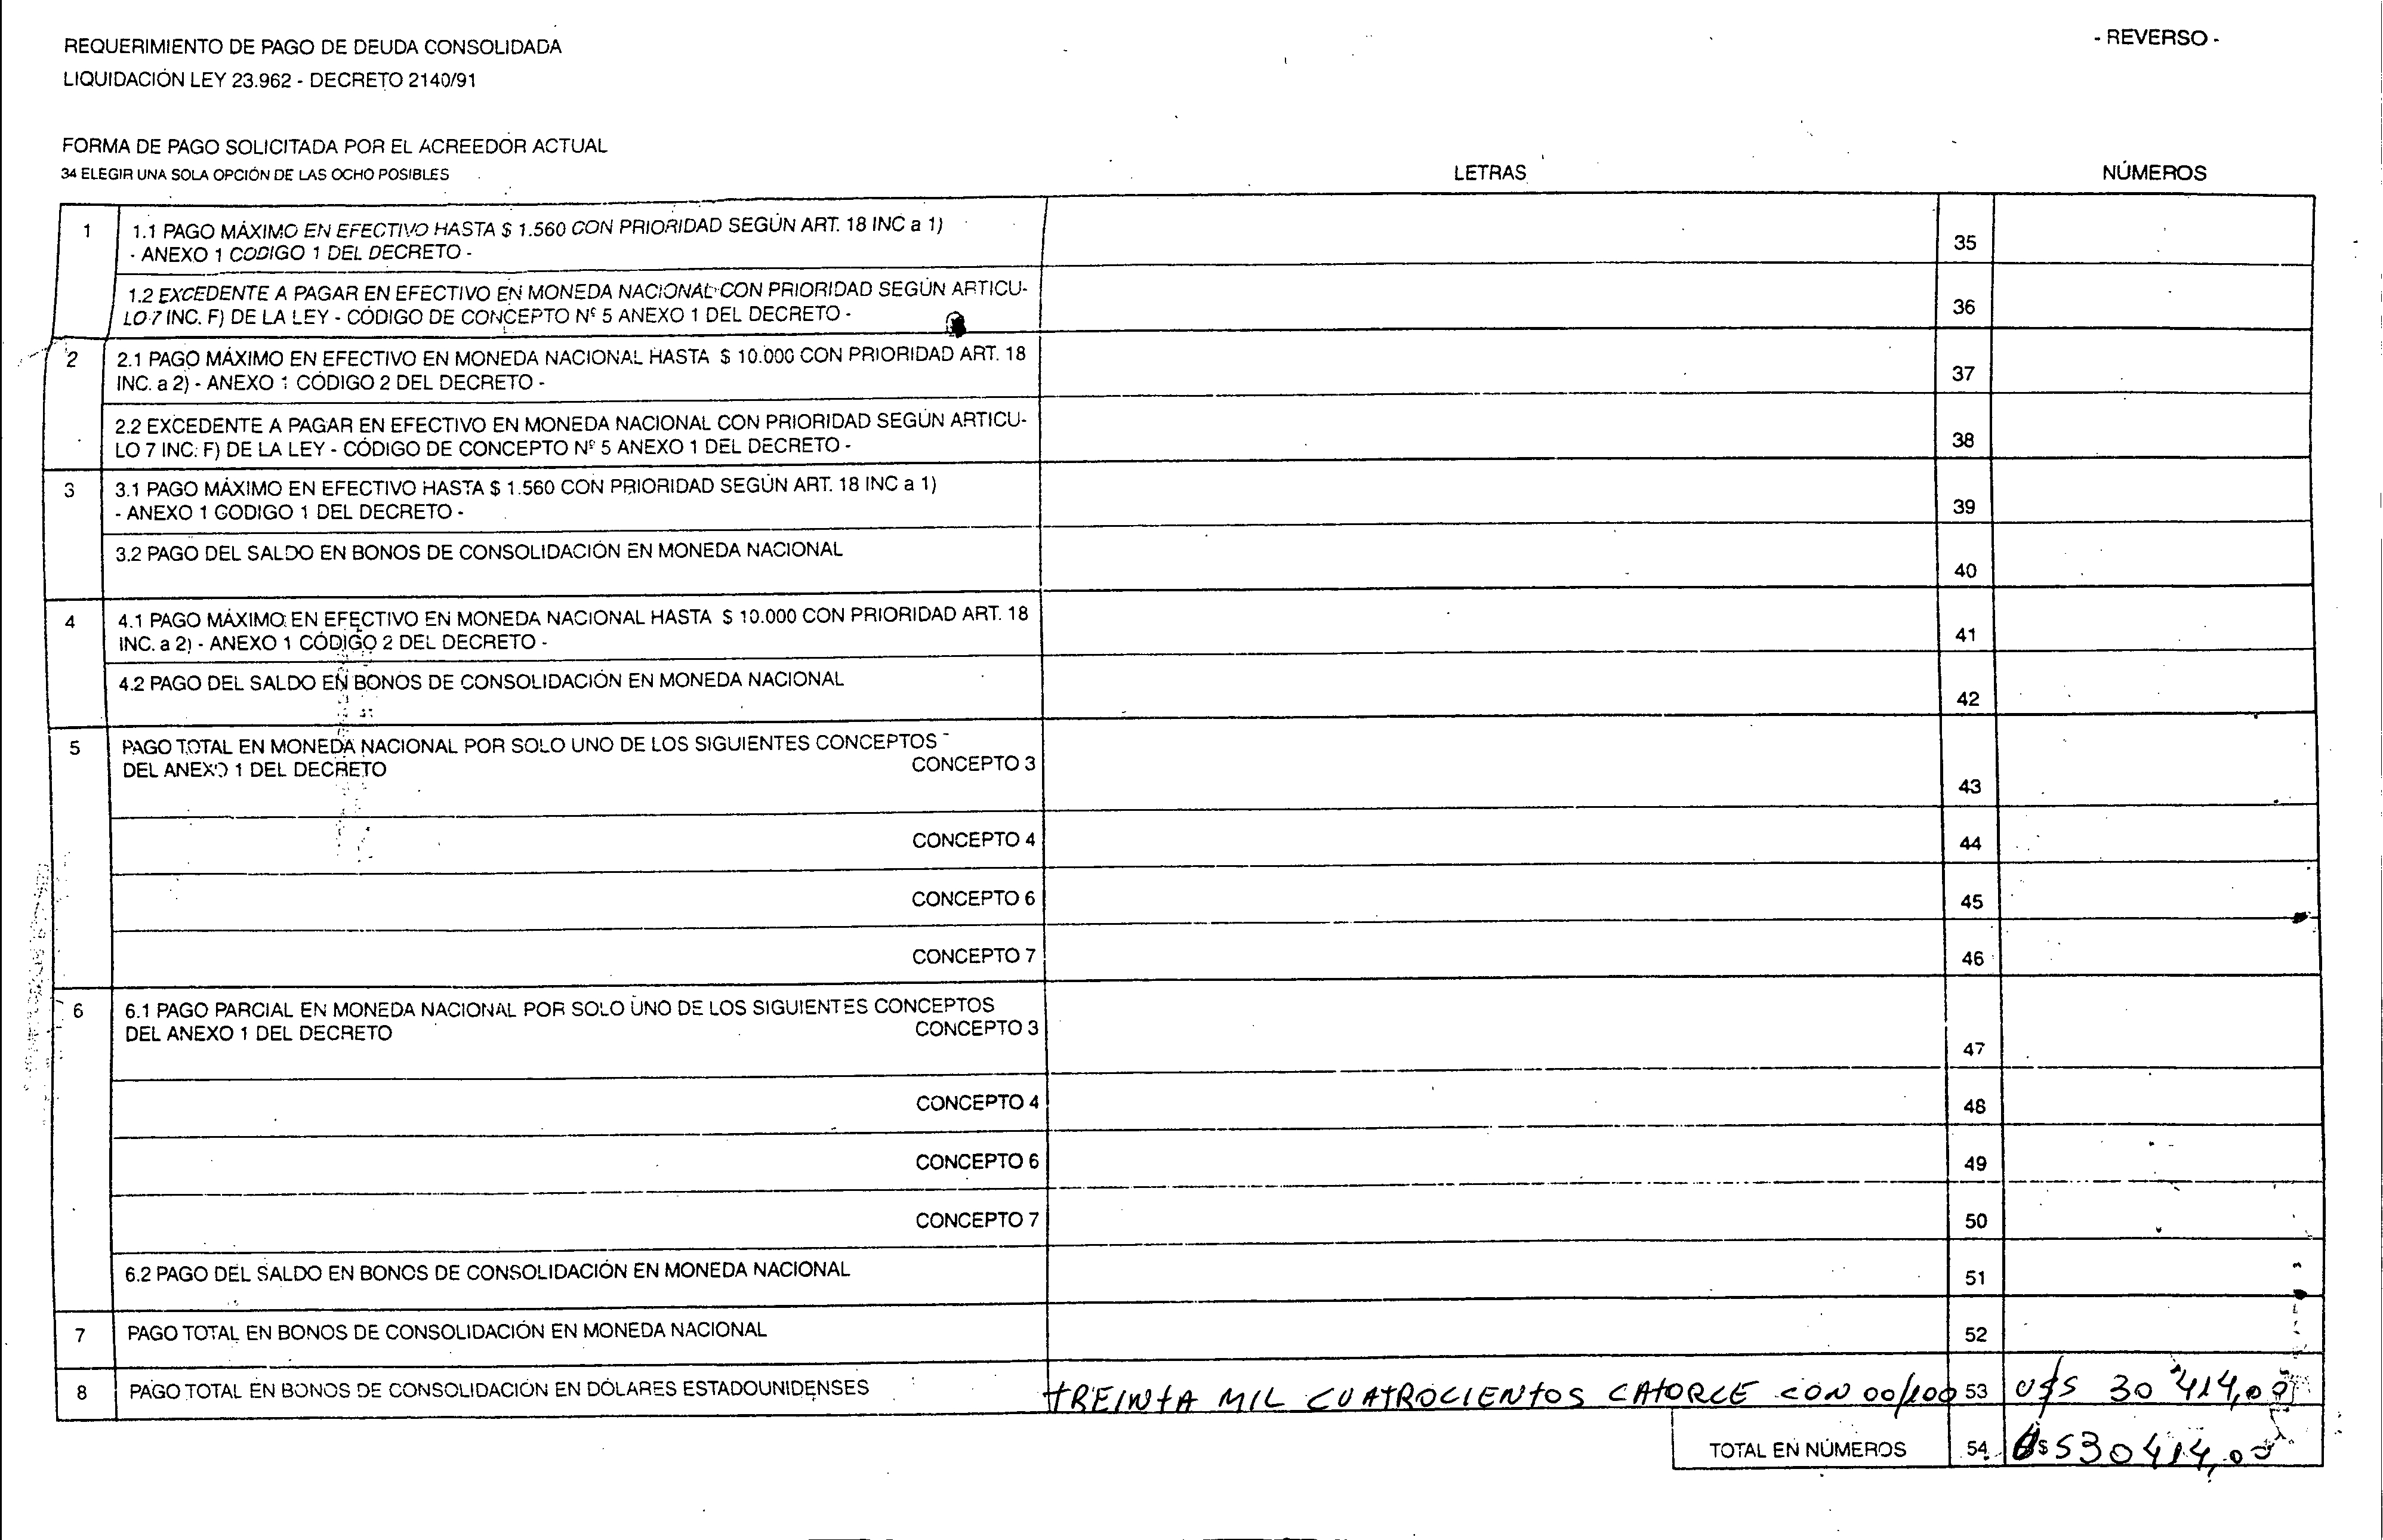 REQUERIMIENTO DE PAGO DE DEUDA CONSOLIDADA
- REVERSO -
LIQUIDACIÓN LEY 23.962 - DECRETO 2140/91
FORMA DE PAGO SOLICITADA POR EL ACREEDOR ACTUAL
34 ELEGIR UNA SOLA OPCIÓN DE LAS OCHO POSIBLES
LETRAS
NÚMEROS
1
1.1 PAGO MÁXIMO EN EFECTIVO HASTA $ 1.560 CON PRIORIDAD SEGÚN ART. 18 INC a 1)
- ANEXO 1 CODIGO 1 DEL DECRETO -
35
1.2 EXCEDENTE A PAGAR EN EFECTIVO EN MONEDA NACIONAL CON PRIORIDAD SEGÚN ARTICU-
LO 7 INC. F) DE LA LEY - CÓDIGO DE CONCEPTO Nº 5 ANEXO 1 DEL DECRETO -
36
2
2.1 PAGO MÁXIMO EN EFECTIVO EN MONEDA NACIONAL HASTA $ 10.000 CON PRIORIDAD ART. 18
INC. a 2) - ANEXO 1 CÓDIGO 2 DEL DECRETO -
37
2.2 EXCEDENTE A PAGAR EN EFECTIVO EN MONEDA NACIONAL CON PRIORIDAD SEGÚN ARTICU-
LO 7 INC. F) DE LA LEY - CÓDIGO DE CONCEPTO Nº 5 ANEXO 1 DEL DECRETO -
38
3
3.1 PAGO MÁXIMO EN EFECTIVO HASTA $ 1.560 CON PRIORIDAD SEGÚN ART. 18 INC a 1)
- ANEXO 1 CODIGO 1 DEL DECRETO -
39
3.2 PAGO DEL SALDO EN BONOS DE CONSOLIDACIÓN EN MONEDA NACIONAL
40
4
4.1 PAGO MÁXIMO EN EFECTIVO EN MONEDA NACIONAL HASTA $ 10.000 CON PRIORIDAD ART. 18
INC. a 2) - ANEXO 1 CÓDIGO 2 DEL DECRETO -
41
4.2 PAGO DEL SALDO EN BONOS DE CONSOLIDACIÓN EN MONEDA NACIONAL
42
5
PAGO TOTAL EN MONEDA NACIONAL POR SOLO UNO DE LOS SIGUIENTES CONCEPTOS
DEL ANEXO 1 DEL DECRETO
CONCEPTO 3
43
CONCEPTO 4
44
CONCEPTO 6
45
CONCEPTO 7
46
6
6.1 PAGO PARCIAL EN MONEDA NACIONAL POR SOLO UNO DE LOS SIGUIENTES CONCEPTOS
DEL ANEXO 1 DEL DECRETO
CONCEPTO 3
47
CONCEPTO 4
48
CONCEPTO 6
49
CONCEPTO 7
50
6.2 PAGO DEL SALDO EN BONOS DE CONSOLIDACIÓN EN MONEDA NACIONAL
51
7
PAGO TOTAL EN BONOS DE CONSOLIDACIÓN EN MONEDA NACIONAL
52
8
PAGO TOTAL EN BONOS DE CONSOLIDACIÓN EN DÓLARES ESTADOUNIDENSES
TREINTA MIL CUATROCIENTOS CATORCE CON 00/100
53
U$S 30414,00
TOTAL EN NÚMEROS
54
U$S 30414,00